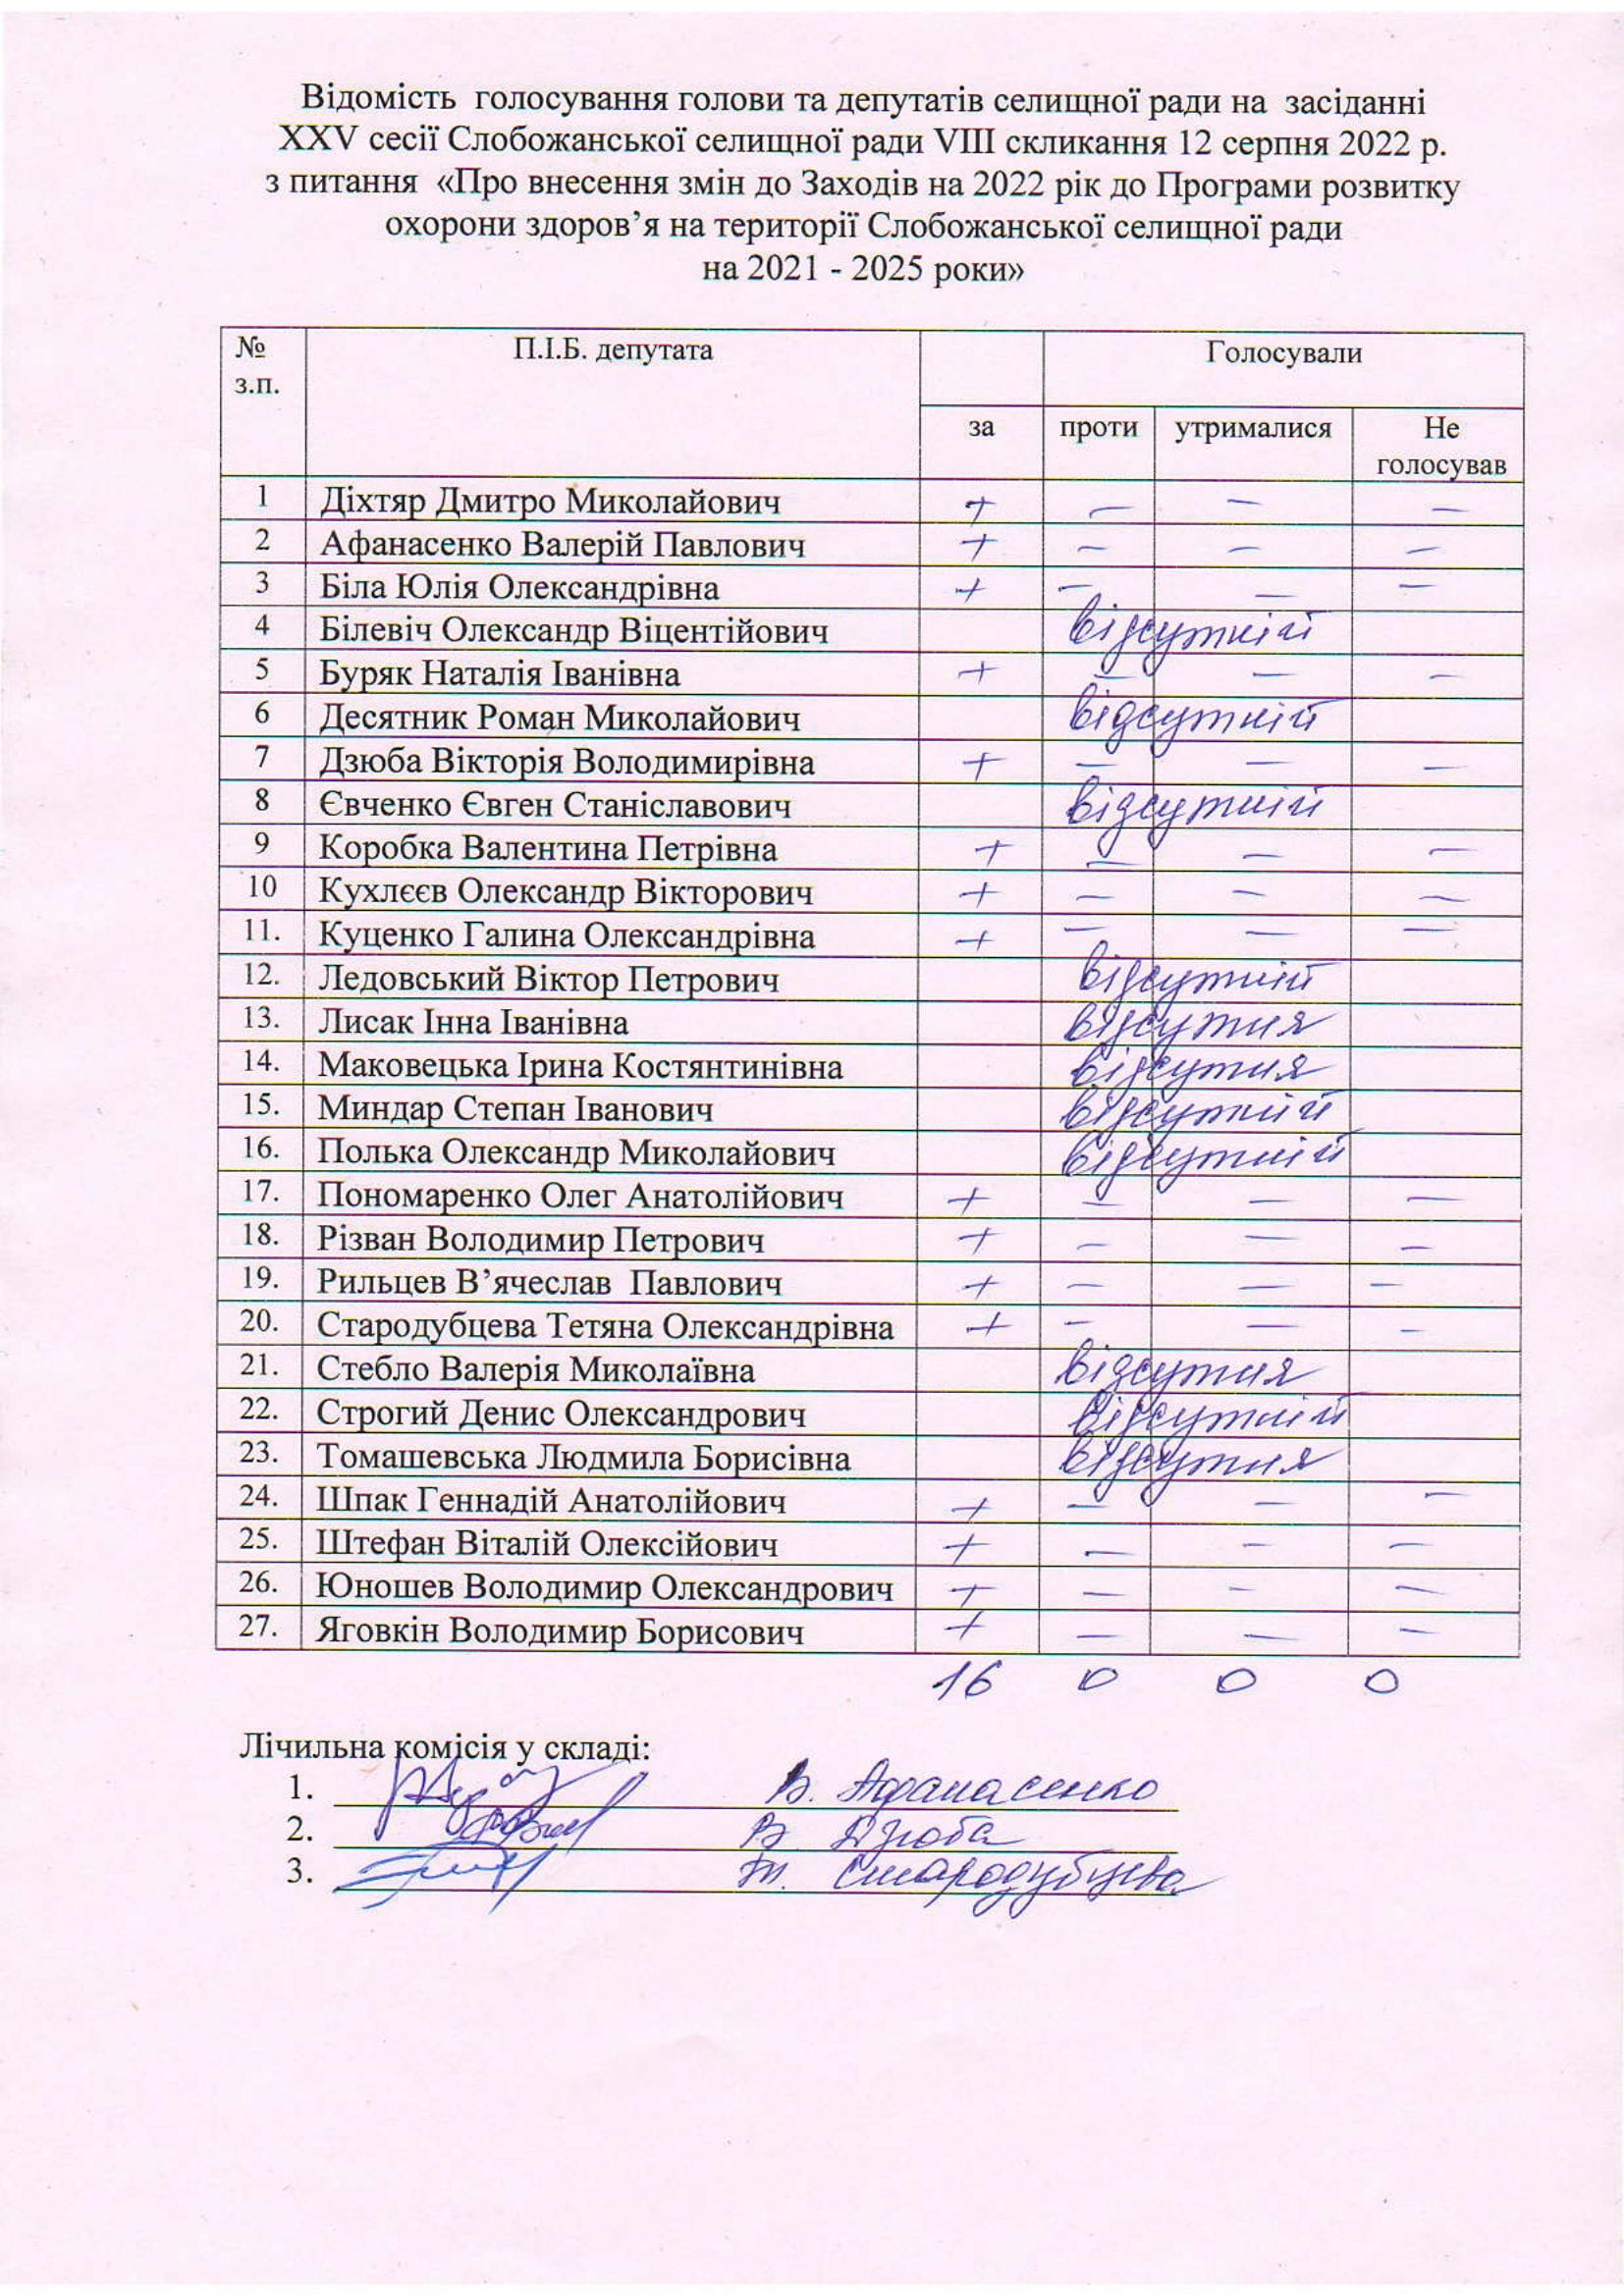 Відомість голосування голови та депутатів селищної ради на засіданні
XXV сесії Слобожанської селищної ради VIII скликання 12 серпня 2022 р.
з питання «Про внесення змін до Заходів на 2022 рік до Програми розвитку
охорони здоров’я на території Слобожанської селищної ради
на 2021 - 2025 роки»
№ з.п. П.І.Б. депутата Голосували
за проти утрималися Не голосував
1 Діхтяр Дмитро Миколайович + — — —
2 Афанасенко Валерій Павлович + — — —
3 Біла Юлія Олександрівна + — — —
4 Білевіч Олександр Віцентійович відсутній
5 Буряк Наталія Іванівна + — — —
6 Десятник Роман Миколайович відсутній
7 Дзюба Вікторія Володимирівна + — — —
8 Євченко Євген Станіславович відсутній
9 Коробка Валентина Петрівна + — — —
10 Кухлєєв Олександр Вікторович + — — —
11. Куценко Галина Олександрівна + — — —
12. Ледовський Віктор Петрович відсутній
13. Лисак Інна Іванівна відсутня
14. Маковецька Ірина Костянтинівна відсутня
15. Миндар Степан Іванович відсутній
16. Полька Олександр Миколайович відсутній
17. Пономаренко Олег Анатолійович + — — —
18. Різван Володимир Петрович + — — —
19. Рильцев В’ячеслав Павлович + — — —
20. Стародубцева Тетяна Олександрівна + — — —
21. Стебло Валерія Миколаївна відсутня
22. Строгий Денис Олександрович відсутній
23. Томашевська Людмила Борисівна відсутня
24. Шпак Геннадій Анатолійович + — — —
25. Штефан Віталій Олексійович + — — —
26. Юношев Володимир Олександрович + — — —
27. Яговкін Володимир Борисович + — — —
16 0 0 0
Лічильна комісія у складі:
1. В. Афанасенко
2. В. Дзюба
3. Т. Стародубцева